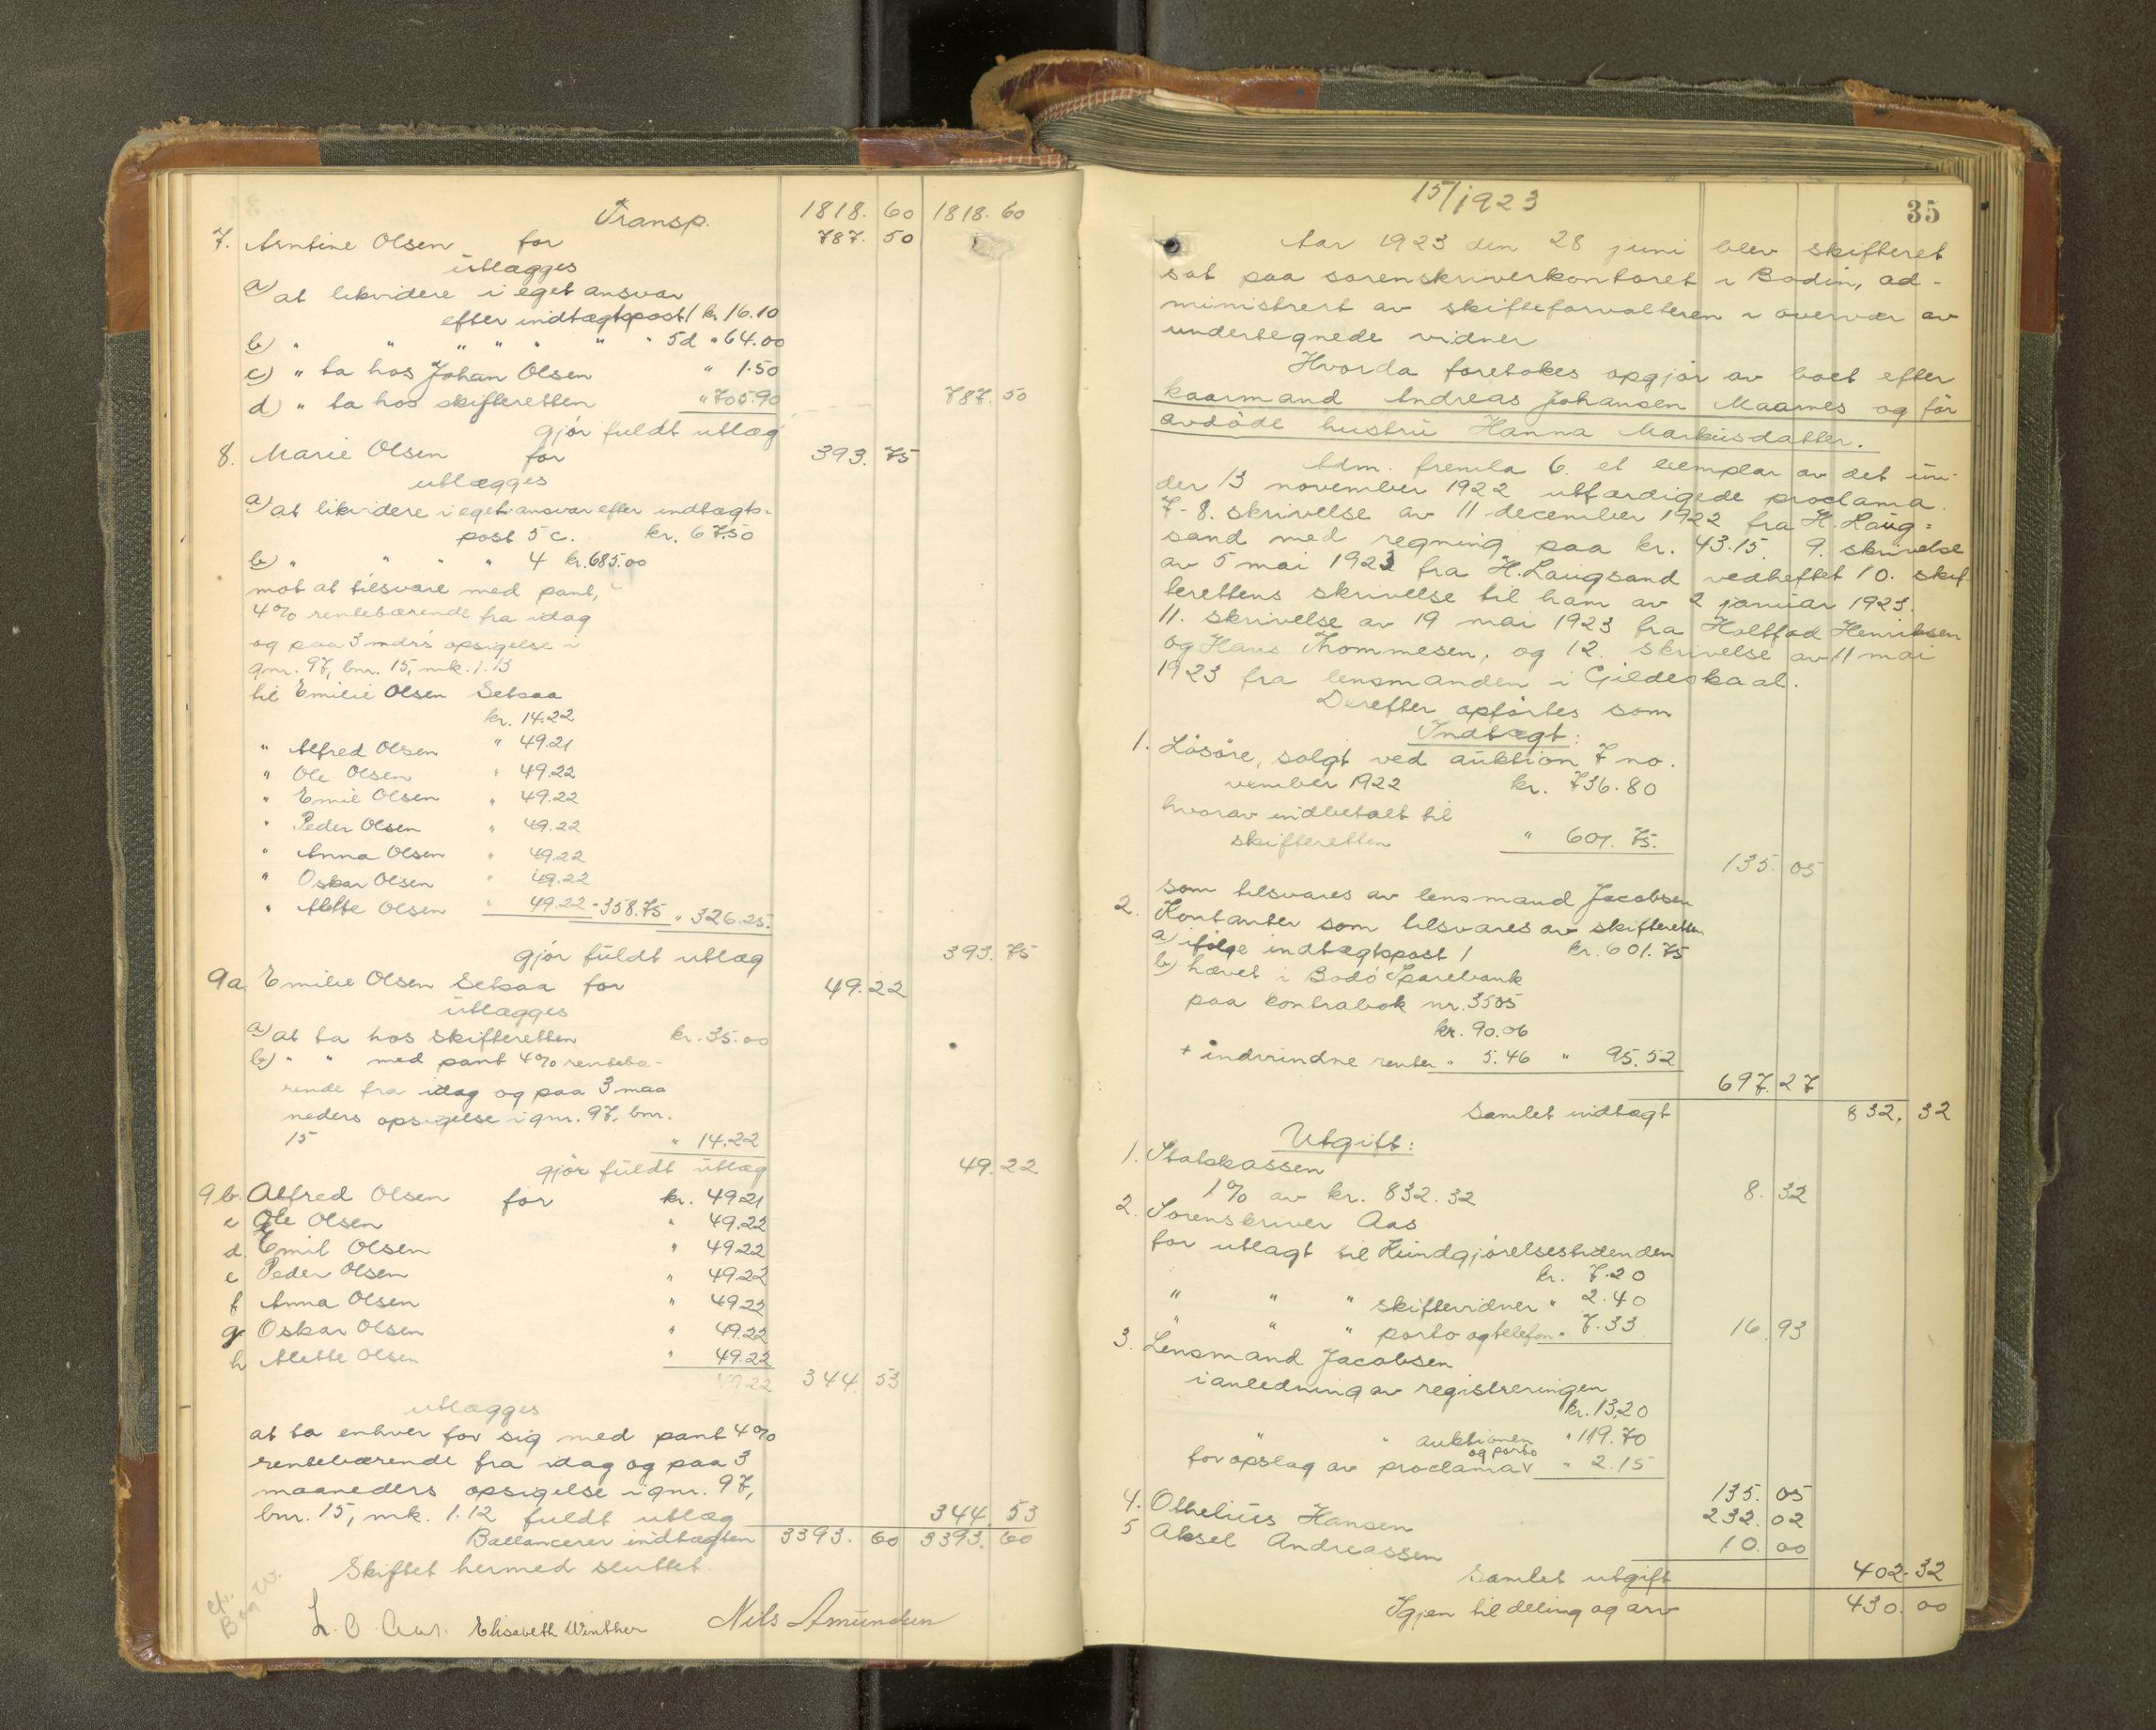 Transp. 1818. 60 1818. 60
7. Arntine Olsen for 787. 50
utlægges
a) at likvidere i eget ansvar
efter indtægtspost 1 kr. 16.10
b) " " " " " " " 5d " 64.00
c) " ta hos Johan Olsen " 1.50
d) " ta hos skifteretten " 705.90 787. 50
gjør fuldt utlæg
8. Marie Olsen for 393. 75
utlægges
a) at likvidere i eget ansvar efter indtægts-
post 5 c. kr. 67.50
b) " " " " 4 kr. 685.00
mot at tilsvare med pant,
4% rentebærende fra idag
og paa 3 mdrs opsigelse i
gnr. 97, bnr. 15, mk. 1.13
til Emilie Olsen Setsaa
kr. 14.22
" Alfred Olsen " 49.21
" Ole Olsen " 49.22
" Emil Olsen " 49.22
" Peder Olsen " 49.22
" Anna Olsen " 49.22
" Oskar Olsen " 49.22
" Mette Olsen " 49.22 - 358.75 " 326.25.
gjør fuldt utlæg 393. 75
9a Emilie Olsen Setsaa for 49. 22
utlægges
a) at ta hos skifteretten kr. 35.00
b) " " med pant 4% renteba-
rende fra idag og paa 3 maa
neders opsigelse i gnr. 97, bnr.
15 " 14.22
gjør fuldt utlæg 49. 22
9b. Alfred Olsen for kr. 49.21
c Ole Olsen " 49.22
d. Emil Olsen " 49.22
e Peder Olsen " 49.22
f Anna Olsen " 49.22
g Oskar Olsen " 49.22
h Mette Olsen " 49.22
344. 53
utlægges
at ta enhver for sig med pant 4%
rentebærende fra idag og paa 3
maaneders opsigelse i gnr. 97,
bnr. 15, mk. 1.12 fuldt utlæg 344 53
Ballancerer indtægten 3393. 60 3393. 60
Skiftet hermed sluttet.
L. O. Aas. Elisabeth Winther Nils Amundsen
15/1923
35
Aar 1923 den 28 juni blev skifteret
sat paa sorenskriverkontoret i Bodin, ad-
ministrert av skifteforvalteren i overvær av
undertegnede vidner
Hvorda foretokes opgjør av boet efter
kaarmand Andreas Johansen Maarnes og før
avdøde hustru Hanna Markusdatter.
Adm. fremla 6. et exemplar av det un-
der 13 november 1922 utfærdigede proclama.
7-8. skrivelse av 11 december 1922 fra H. Laug-
sand med regning paa kr. 43.15. 9. skrivelse
av 5 mai 1923 fra H. Laugsand vedheftet 10. skif-
terettens skrivelse til ham av 2 januar 1923.
11. skrivelse av 19 mai 1923 fra Holtfod Henriksen
og Hans Thommesen, og 12. skrivelse av 11 mai
1923 fra lensmanden i Gildeskaal.
Derefter opførtes som
Indtægt:
1. Løsøre, solgt ved auktion 7 no.
vember 1922 kr. 736.80
hvorav indbetalt til
skifteretten " 601. 75.
135. 05
som tilsvares av lensmand Jacobsen
2. Kontanter som tilsvares av skifteretten
a) ifølge indtægtspost 1 kr. 601.75
b) hævet i Bodø Sparebank
paa kontrabok nr. 3505
kr. 90.06
+ indvundne renter " 5.46 " 95.52
697. 27
Samlet indtægt 832. 32
Utgift:
1. Statskassen
1% av kr. 832.32 8. 32
2. Sorenskriver Aas
for utlagt til Kundgjørelsestidenden
kr. 7.20
" " " skiftevidner " 2.40
" " " porto og telefon " 7.33 16. 93
3. Lensmand Jacobsen
i anledning av registreringen
kr. 13.20
" " auktionen " 119.70
og porto
for opslag av proclama v " 2.15
135. 05
4. Othelius Hansen 232. 02
5 Aksel Andreassen 10. 00
Samlet utgift 402. 32
Igjen til deling og arv 430. 00